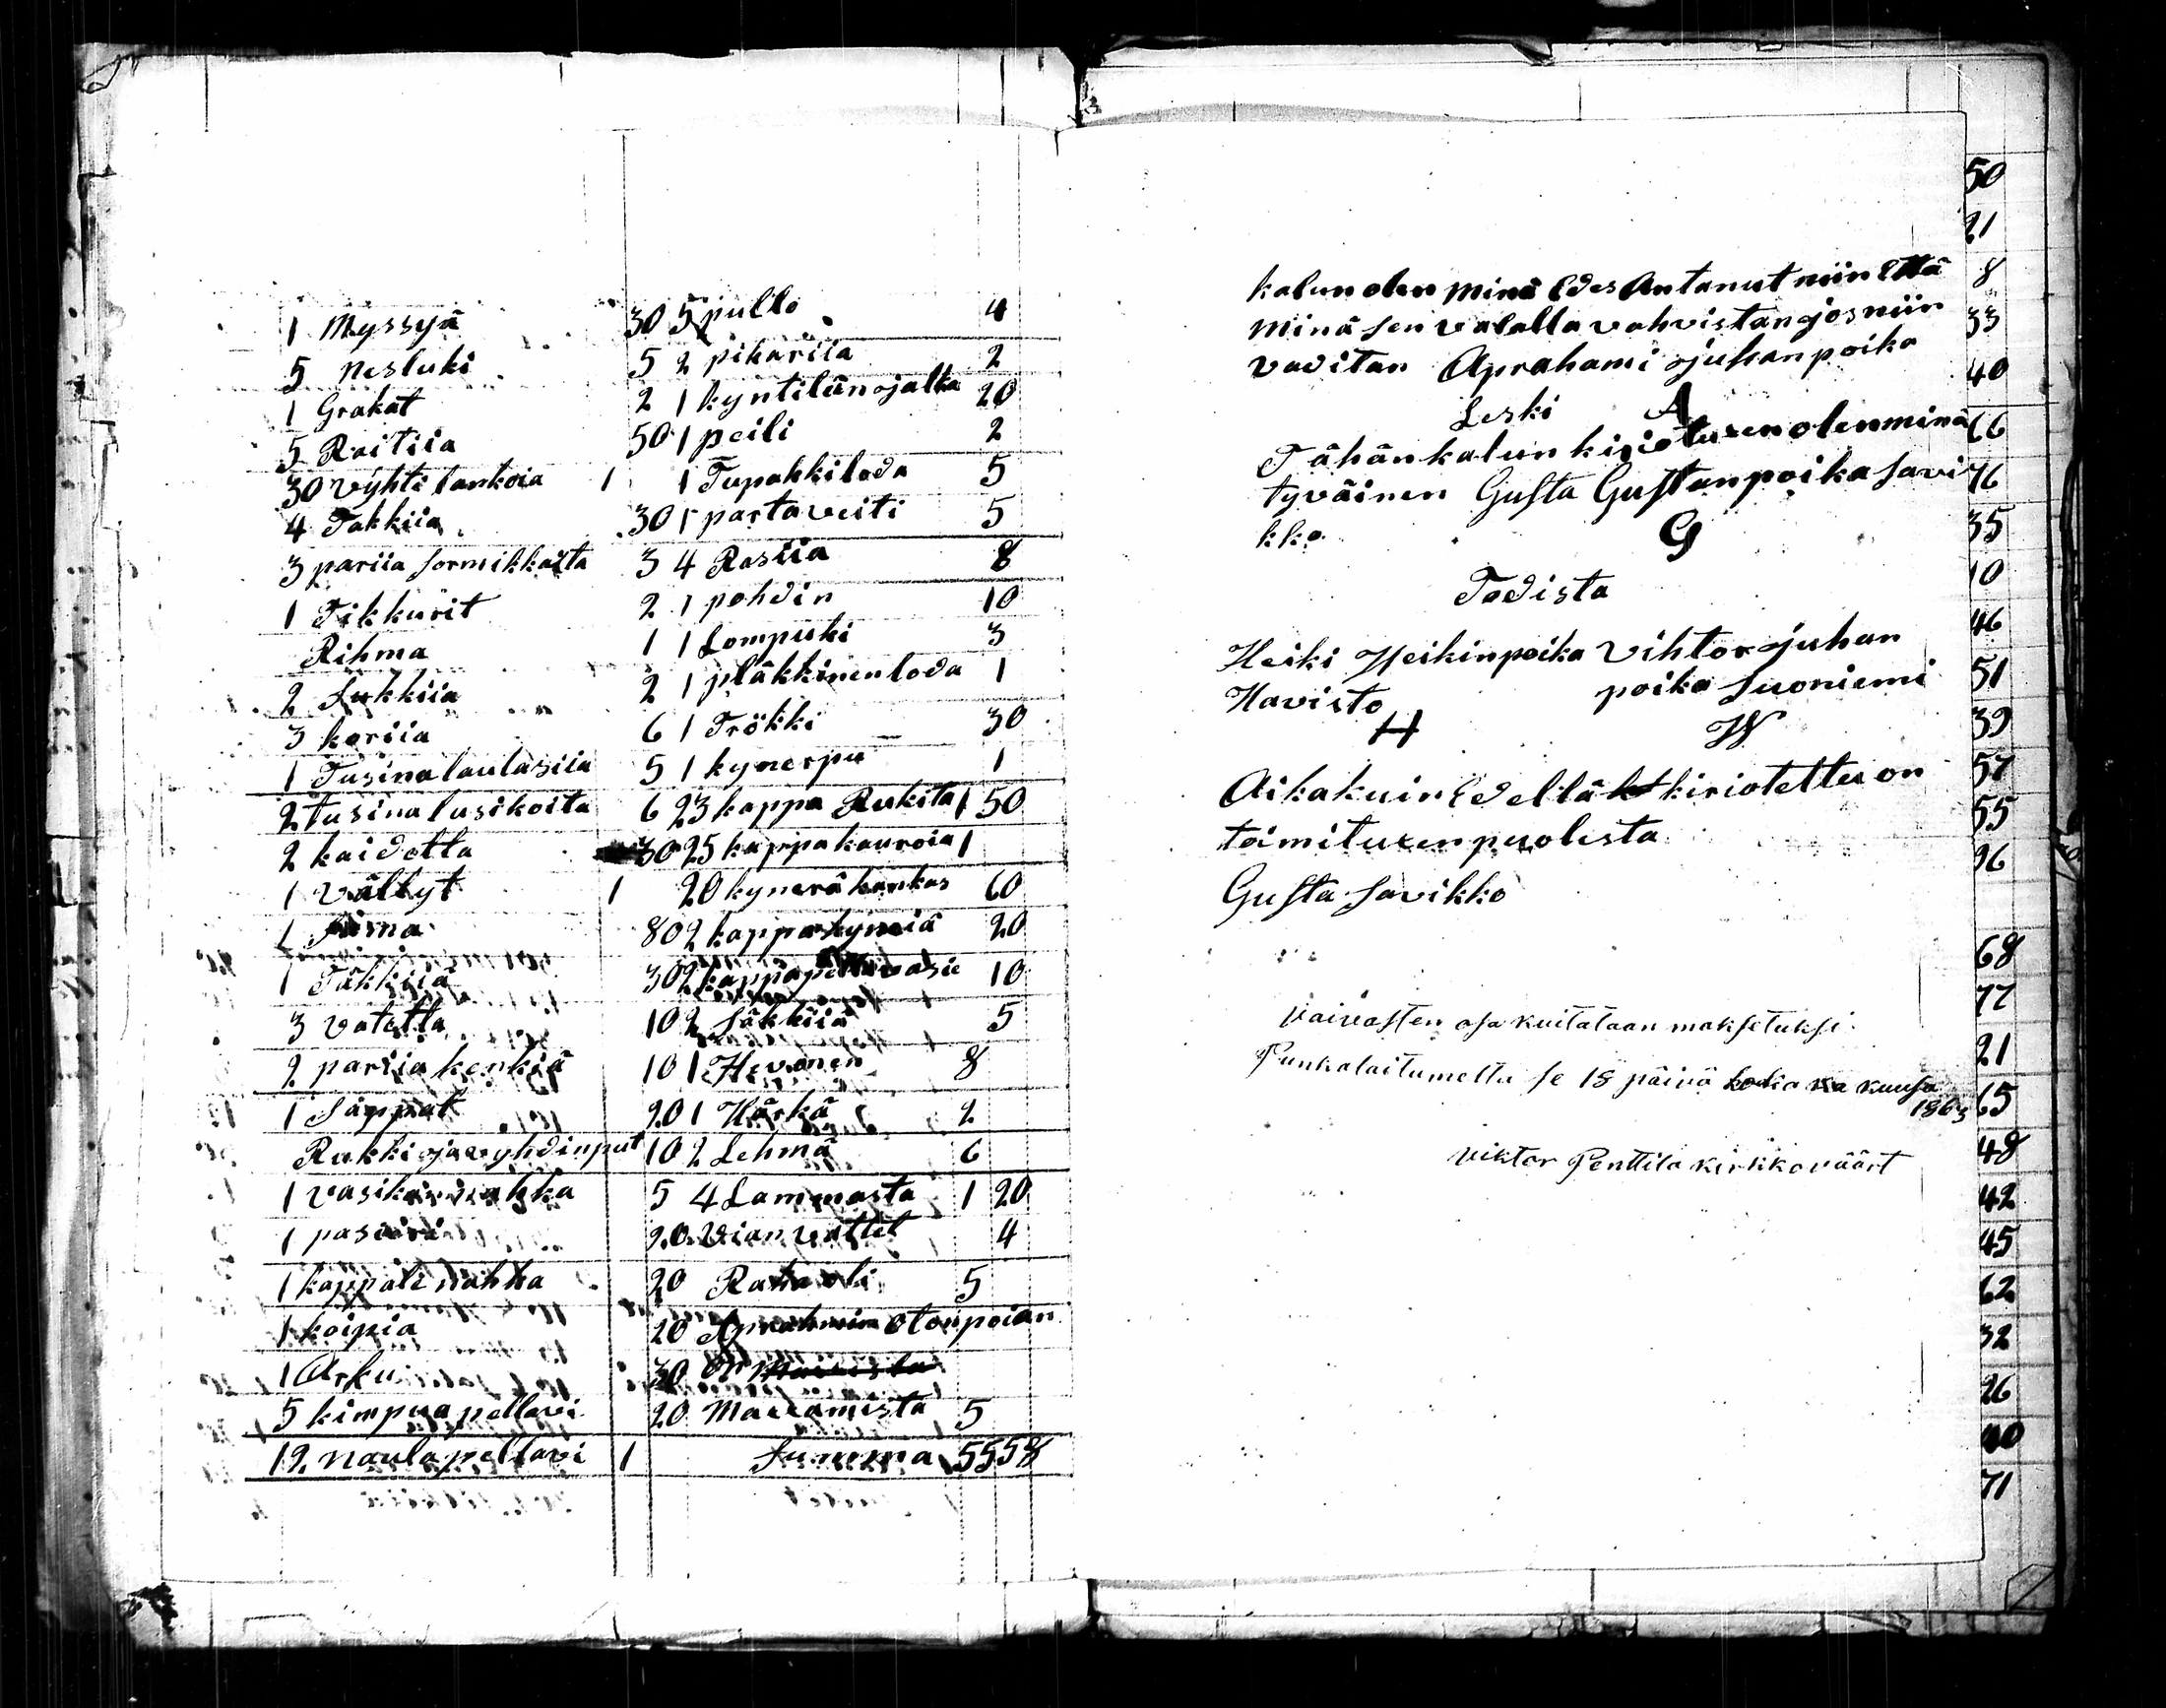 1 Myssyä 30
5 nesluki 5
1 Grakat 2
5 Raitiia 50
30 vyhti lankoia 1
4 Takkiia 30
3 pariia sormikkaita 3
1 Tikkurit 2
Rihma 1
2 Sukkiia 2
3 koriia 6
1 Tusina laulasiia 5
2 tusina lusikoita 6
2 kaidetta 30
1 vällyt 1
1 80
1 Täkkiiä 30
3 vatetta 10
2 pariia kenkiä 10
1 Säppat 20
Rukki ja vyhdinput 10
1 vasikan nahka 5
1 20
1 kappale nahka 20
1 koipia 20
1 Arku 30
5 kimpua pellavi 20
12 naula pellavi 1
5 pullo 4
2 pikariia 2
1 kyntilän jalka 20
1 peili 2
1 Tupakkiloda 5
1 partaveiti 5
4 Rasiia 8
1 pohdin 10
1 Lompuki 3
1 pläkkinen loda 1
1 Trökki 30
1 kynerpu 1
23 kappa Rukita 1 50
25 kappa kauroia 1
20 kynerä kankas 60
2 kappa 20
2 kappa 10
2 Säkkiiä 5
1 Hevonen 8
1 Härkä 2
2 Lehmä 6
4 Lammasta 1 20
Vian vattet 4
Raha oli 5
otonpoian
Mailamista 5
Summa 55 58
kalun olen minä Edes Antanut niin Että
minä sen valalla vahvistan jos niin
vaditan Aprahami juhanpoika
Leski A
Tähän kalun kiriotuxen olen minä
tyväinen Gusta Gustanpoika Savi
kko G
Todista
Heiki Heikinpoika Vihtor juhan
Havisto poika Suoniemi
H W
Aika kuin Edellä kiriotettu on
toimituxen puolesta
Gusta Savikko
Vaivasten osa kuitataan maksetuksi
Punkalaitumella se 18 päivä kuusa
1863
Viktor Penttila kirkkoväärt
50
21
8
33
40
66
76
35
10
46
51
39
57
55
96
68
77
21
65
48
42
45
62
32
26
40
71